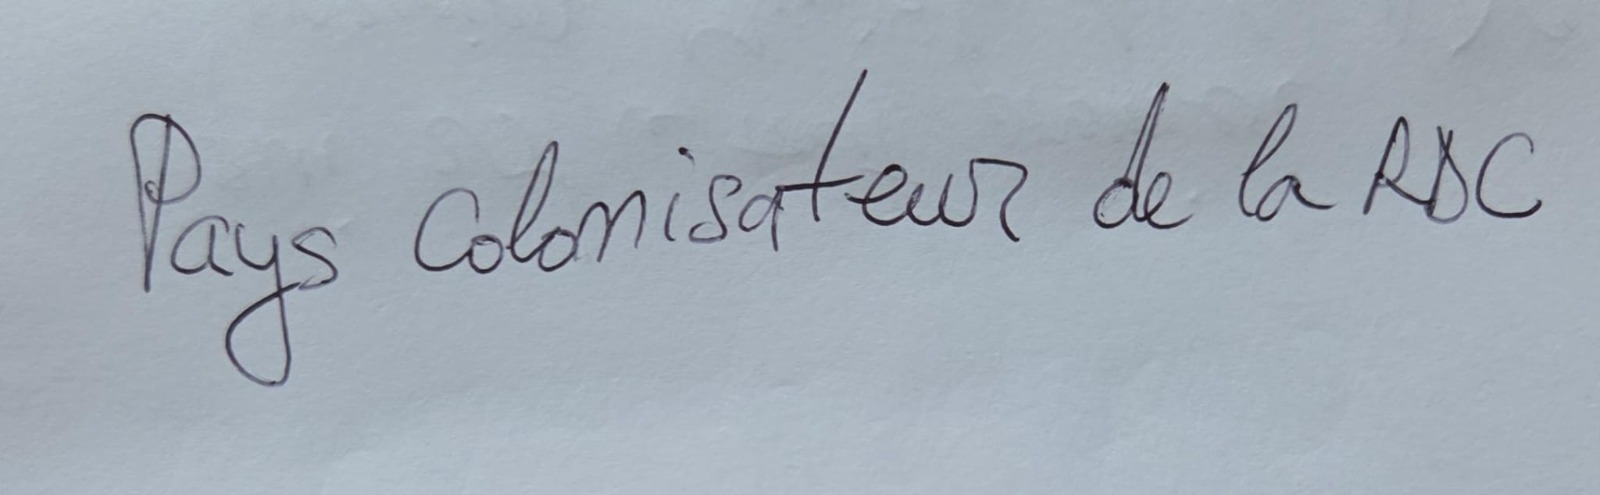 Pays colonisateur de la RDC